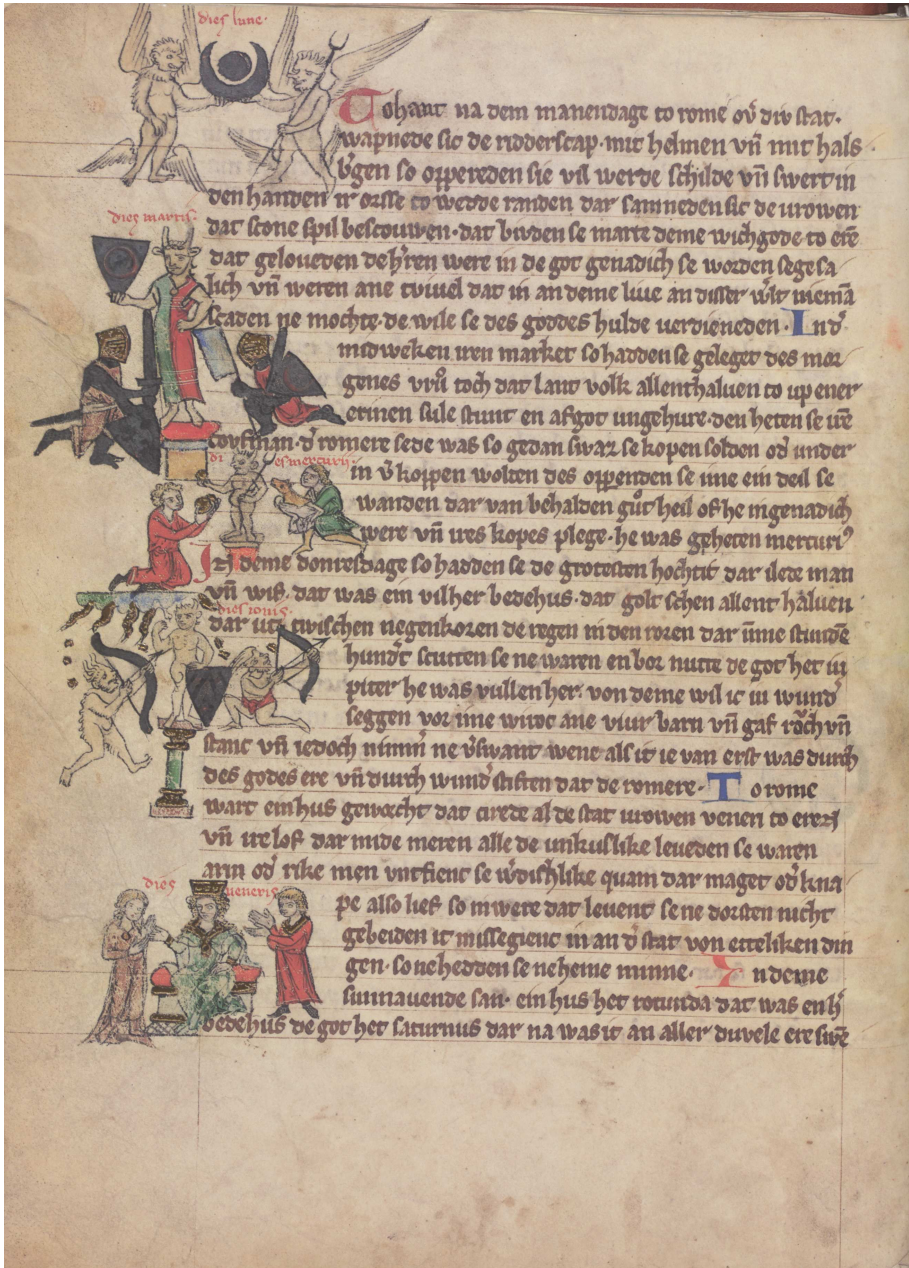 dies lune·
Tohant na dem manendage to rome ov̄ div stat·
wapnede sic de ridderscap· mit helmen vn̄ mit hals
b͛gen so oppereden sie vil werde schilde vn̄ swert in
den handen ir orsse to wedde randen dar samneden sic de urowen
dies martis·
dat scone spil bescouwen· dat bivden se marte deme wichgode to ere
dat geloueden de h͛ren were in de got genadich se worden sege sa
lich vn̄ weren ane tvivel dat in an deme live an disser w͛lt niemā
scaden ne mochte· de wile se des goddes hulde verdieneden· In d͛
midweken iren market so hadden se geleget des mor
genes vrů toch dat lant volk allenthalven to up ener
erinen sule stunt en afgot ungehure· den heten se ire
coufman· d͛ romere sede was so gedan swaz se kopen solden od͛ under
dies mercurii·
in v͛koppen wolten des oppenden se ime ein deil se
wanden dar van behalden gůt heil of he in genadich
were vn̄ ires kopes plege· he was geheten mercuri⁹
In deme donresdage so hadden se de grotesten hochtit dar ilete man
vn̄ wif· dat was ein vil her bedehus· dat golt schen allent halven
dies iovis·
dar uz twischen negenkoren de regen in den roren dar ūme stunde
hund͛t scutten se ne waren enbor nutte de got het iu
piter he was vullen her· von deme wil ic iu wund͛
seggen vor ime wiroc ane viur barn vn̄ gaf roch vn̄
stanc vn̄ iedoch nimm͛ ne v͛swant wene als it ie van erst was durch
des godes ere vn̄ durch wund͛ stiften dat de romere· To rome
wart ein hus geworcht dat cirede al de stat urowen venen to eren
vn̄ ire lof dar mide meren alle de unkuslike leveden se waren
arm od͛ rike men untfienc se w͛dichlike quam dar maget od͛ kna
dies veneris
pe also lief so in were dat levent se ne dorsten nicht
gebeiden it missegienc in an d͛ stat von etteliken din
gen· so ne hedden se neheine minne· In deme
sunnavende san· ein hus het rotunda dat was en h͛
bedehus de got het saturnus dar na was it an aller duvele ere